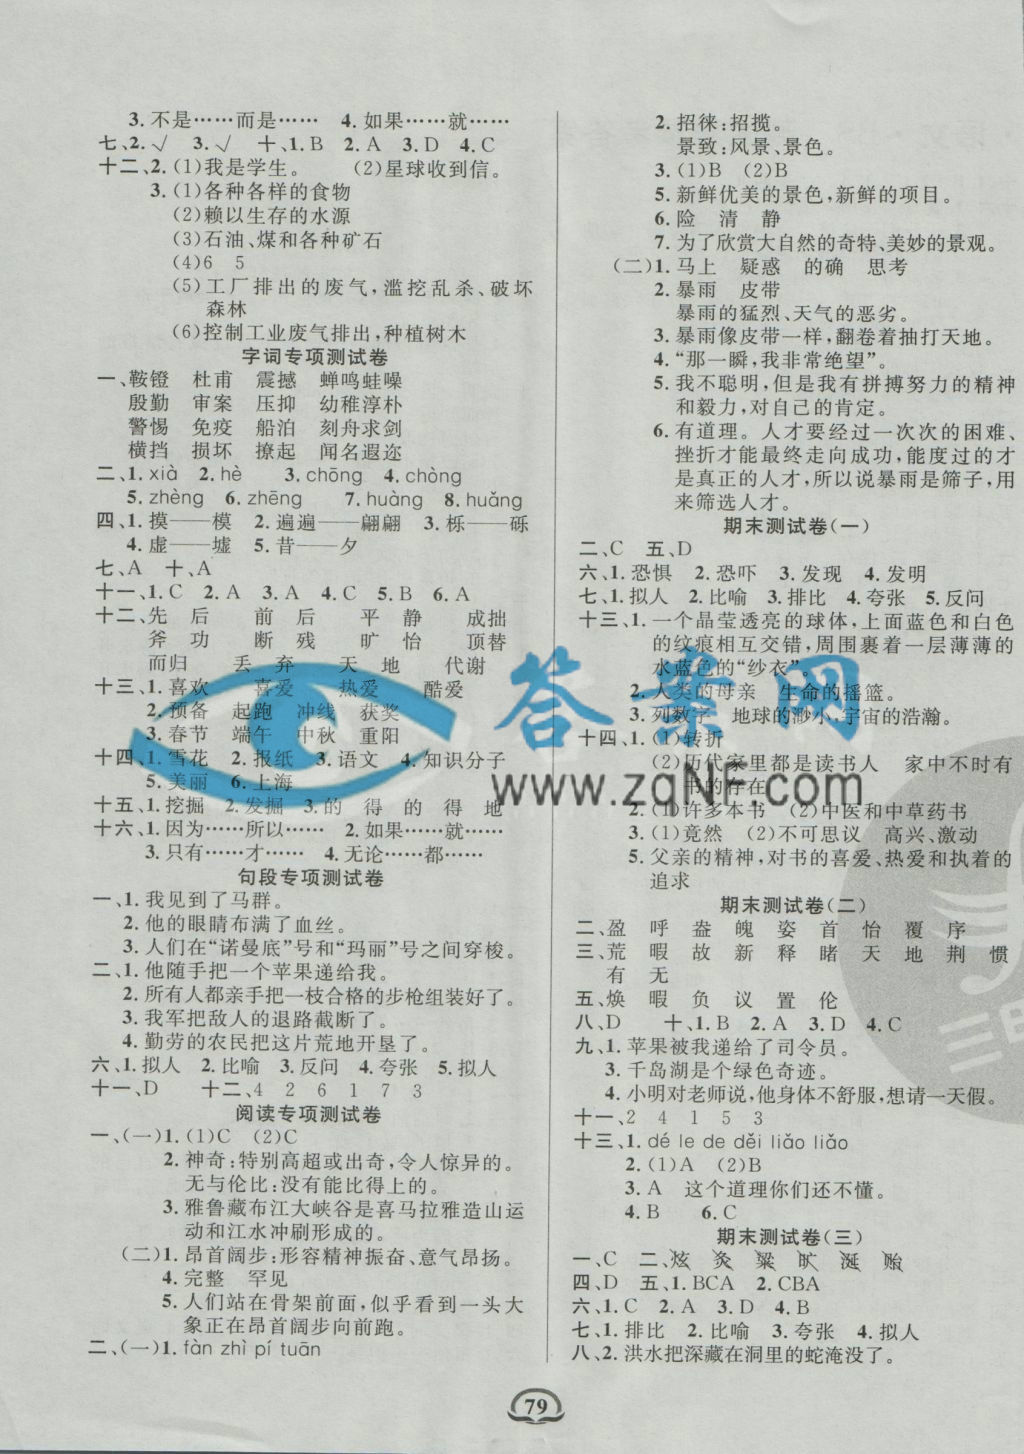 3. 不是……而是……　4. 如果……就……
七、2. √　3. √　十、1. B　2. A　3. D　4. C
十二、2. (1)我是学生。　(2)星球收到信。
3. (1)各种各样的食物
(2)赖以生存的水源
(3)石油、煤和各种矿石
(4)6　5
(5)工厂排出的废气,滥挖乱杀、破坏
森林
(6)控制工业废气排出,种植树木
字词专项测试卷
一、鞍镫　杜甫　震撼　蝉鸣蛙噪
殷勤　审案　压抑　幼稚淳朴
警惕　免疫　船泊　刻舟求剑
横挡　损坏　撩起　闻名遐迩
二、1. xià　2. hè　3. chōng　4. chòng
5. zhèng　6. zhēng　7. huàng　8. huǎng
四、1. 摸——模　2. 遍遍——翩翩　3. 栎——砾
4. 虚——墟　5. 昔——夕
七、A　十、A
十一、1. C　2. A　3. A　4. C　5. B　6. A
十二、先　后　前　后　平　静　成拙
斧　功　断　残　旷　怡　顶替
而归　丢　弃　天　地　代谢
十三、1. 喜欢　喜爱　热爱　酷爱
2. 预备　起跑　冲线　获奖
3. 春节　端午　中秋　重阳
十四、1. 雪花　2. 报纸　3. 语文　4. 知识分子
5. 美丽　6. 上海
十五、1. 挖掘　2. 发掘　3. 的　得　的　得　地
十六、1. 因为……所以……　2. 如果……就……
3. 只有……才……　4. 无论……都……
句段专项测试卷
一、1. 我见到了马群。
2. 他的眼睛布满了血丝。
3. 人们在“诺曼底”号和“玛丽”号之间穿梭。
二、1. 他随手把一个苹果递给我。
2. 所有人都亲手把一枝合格的步枪组装好了。
3. 我军把敌人的退路截断了。
4. 勤劳的农民把这片荒地开垦了。
六、1. 拟人　2. 比喻　3. 反问　4. 夸张　5. 拟人
十一、D　十二、4　2　6　1　7　3
阅读专项测试卷
一、(一)1. (1)C　(2)C
2. 神奇:特别高超或出奇,令人惊异的。
无与伦比:没有能比得上的。
3. 雅鲁藏布江大峡谷是喜马拉雅造山运
动和江水冲刷形成的。
(二)1. 昂首阔步:形容精神振奋、意气昂扬。
4. 完整　罕见
5. 人们站在骨架前面,似乎看到一头大
象正在昂首阔步向前跑。
二、(一)1. fàn zhì pí tuān
2. 招徕:招揽。
景致:风景、景色。
3. (1)B　(2)B
5. 新鲜优美的景色,新鲜的项目。
6. 险　清　静
7. 为了欣赏大自然的奇特、美妙的景观。
(二)1. 马上　疑惑　的确　思考
2. 暴雨　皮带
暴雨的猛烈、天气的恶劣。
3. 暴雨像皮带一样,翻卷着抽打天地。
4. “那一瞬,我非常绝望”。
5. 我不聪明,但是我有拼搏努力的精神
和毅力,对自己的肯定。
6. 有道理。人才要经过一次次的困难、
挫折才能最终走向成功,能度过的才
是真正的人才,所以说暴雨是筛子,用
来筛选人才。
期末测试卷(一)
二、C　五、D
六、1. 恐惧　2. 恐吓　3. 发现　4. 发明
七、1. 拟人　2. 比喻　3. 排比　4. 夸张　5. 反问
十三、1. 一个晶莹透亮的球体,上面蓝色和白色
的纹痕相互交错,周围裹着一层薄薄的
水蓝色的“纱衣”。
2. 人类的母亲　生命的摇篮。
3. 列数字　地球的渺小,宇宙的浩瀚。
十四、1. (1)转折
(2)历代家里都是读书人　家中不时有
书的存在
2. (1)许多本书　(2)中医和中草药书
3. (1)竟然　(2)不可思议　高兴、激动
5. 父亲的精神,对书的喜爱、热爱和执着的
追求
期末测试卷(二)
二、盈　呼　盎　魄　姿　首　怡　覆　序
三、荒　暇　故　新　释　睹　天　地　荆　惯
有　无
五、焕　暇　负　议　置　伦
八、D　十、1. B　2. A　3. D　4. C
九、1. 苹果被我递给了司令员。
3. 千岛湖是个绿色奇迹。
4. 小明对老师说,他身体不舒服,想请一天假。
十一、2　4　1　5　3
十三、1. dé le de děi liǎo liǎo
2. (1)A　(2)B
3. A　这个道理你们还不懂。
4. B　6. C
期末测试卷(三)
一、C　二、炫　灸　粱　旷　涎　贻
四、D　五、1. BCA　2. CBA
六、1. C　2. A　3. D　4. B
七、1. 排比　2. 比喻　3. 夸张　4. 拟人
八、2. 洪水把深藏在洞里的蛇淹没了。
79
答案网
www.zqNF.com